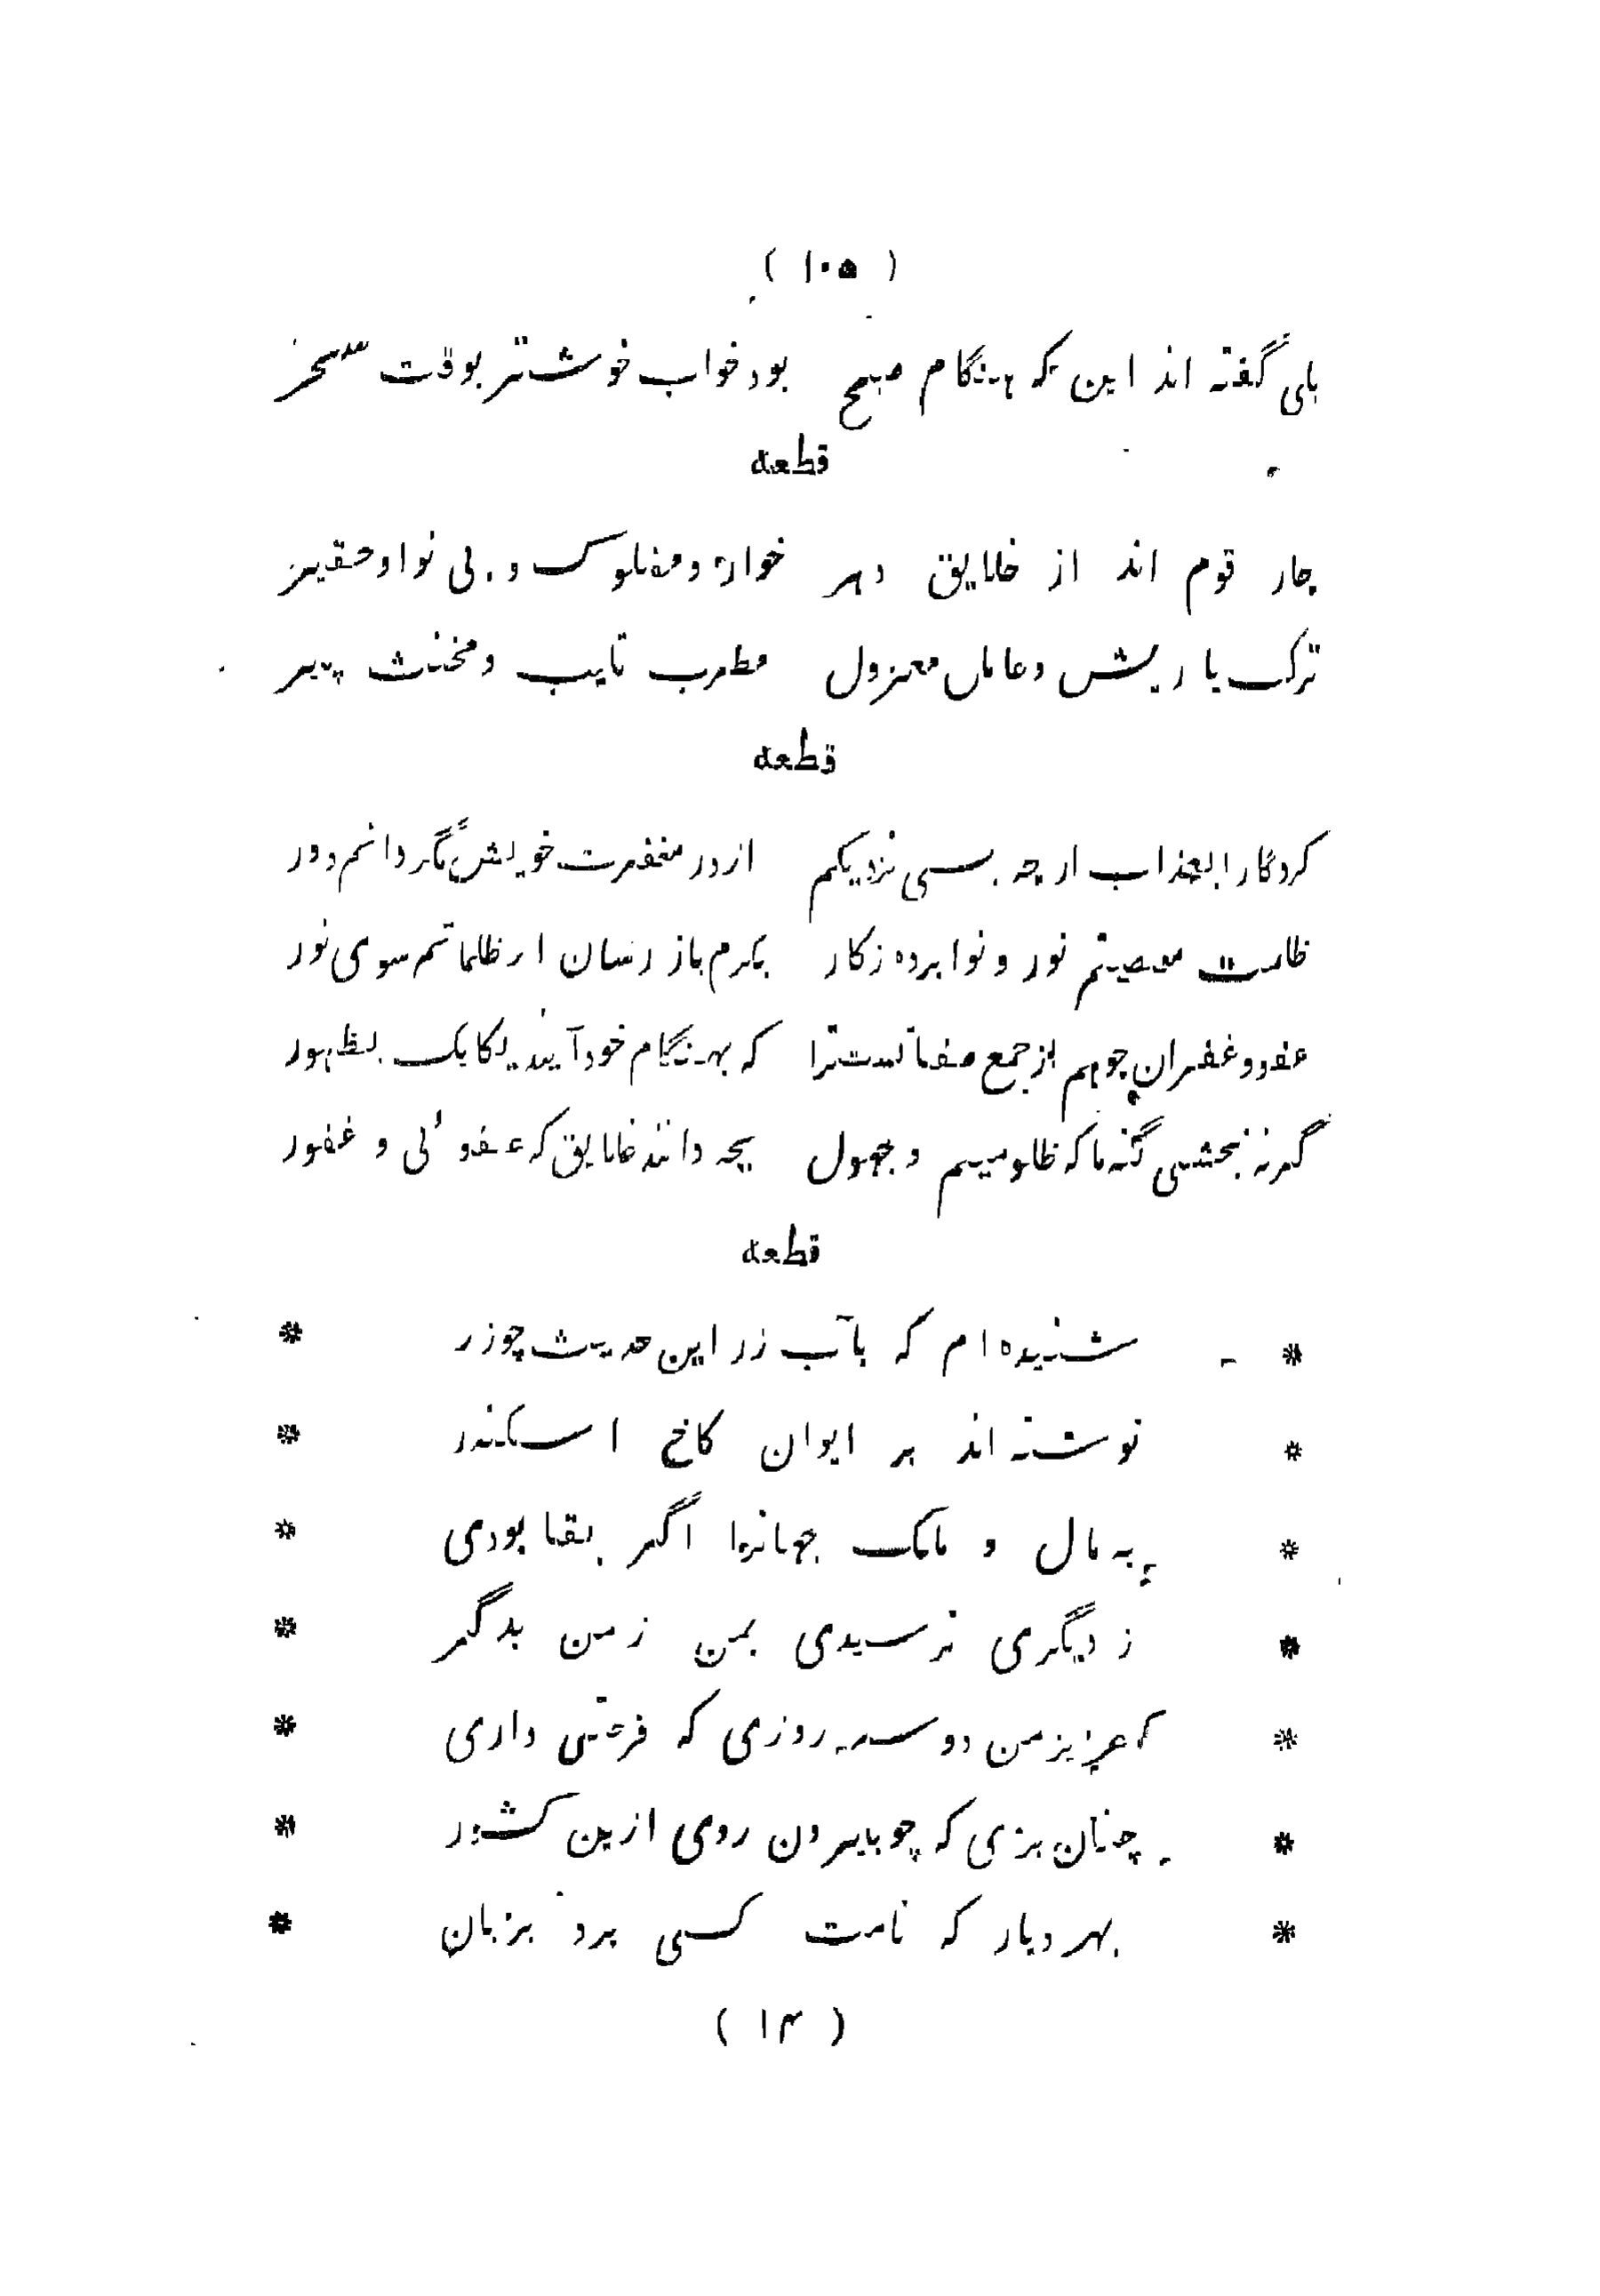 ( ۱۰۵ )
بلی گفته اند این که هنگام صبح بود خواب خوشتر بوقت سحر
قطعه
چار قوم اند از خلایق دهر خوار و مفلوک و بی نوا و حقیر
ترک با ریش و عامل معزول مطرب تایب و مخنث پیر
قطعه
کردگارا بعذاب ار چه بسی نزدیکم از در مغفرت خویش مگردانم دور
ظلمت معصیتم نور و نوا برده ز کار بکرم باز رسان از ظلماتم سوی نور
عفو و غفران چو هم از جمع صفاتست ترا که بهنگام خود آیند یکایک بظهور
گر نه بخشی گنه ما که ظلومیم و جهول بچه دانند خلایق که عفوئی و غفور
قطعه
* شنیده ام که بآب زر این حدیث چو زر *
* نوشته اند بر ایوان کاخ اسکندر *
* به مال و ملک جهانرا اگر بقا بودی *
* ز دیگری نرسیدی بمن ز من بدگر *
* عزیز من دو سه روزی که فرصتی داری *
* چنان بزی که چو بیرون روی ازین کشور *
* بهر دیار که نامت کسی برد بزبان *
( ۱۴ )